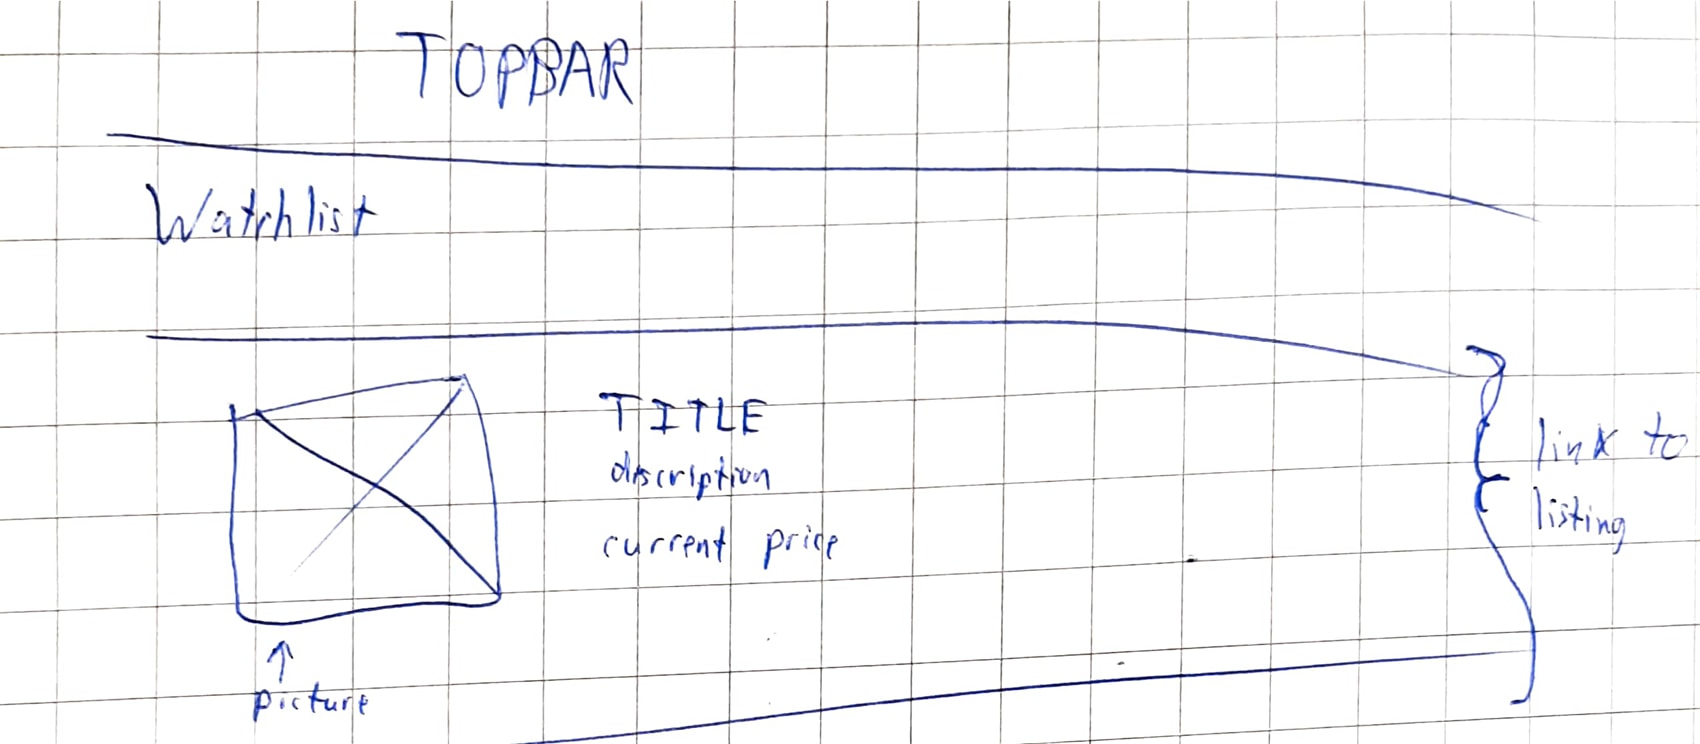 TOPBAR
Watchlist
TITLE
description
current price
link to
listing
picture